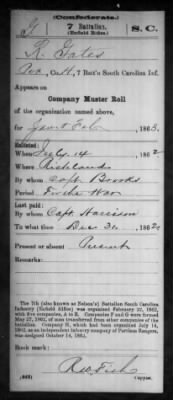 (Confederate.)
G 7 Battalion, S. C.
(Enfield Rifles)
R. Gates
Pvt, Co. H, 7 Batt'n South Carolina Inf.
Appears on
Company Muster Roll
of the organization named above,
for Jan & Feb, 1863.
Enlisted:
When July 14, 1862
Where Richland
By whom Capt. Brooks
Period For the War
Last paid:
By whom Capt. Harrison
To what time Dec 31, 1862.
Present or absent Present
Remarks:
The 7th (also known as Nelson's) Battalion South Carolina
Infantry (Enfield Rifles) was organized February 22, 1862,
with five companies, A to E. Companies F and G were organized
May 1862, of men transferred from other companies of the
battalion. Company H, which had been organized July 14,
1862, as an independent company of Partisan Rangers,
was assigned October 14, 1862.
Book mark:
R W Fish
(642) Copyist.